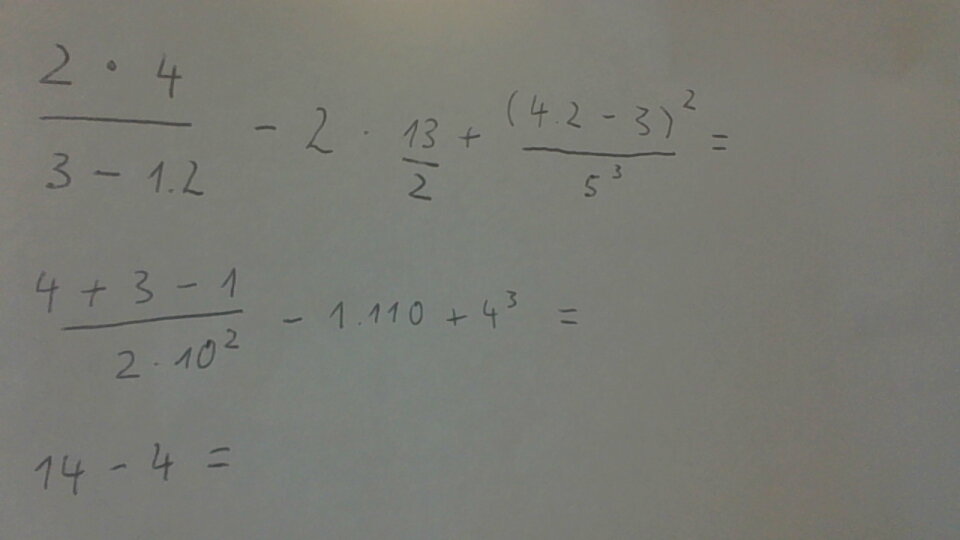 2 · 4 / 3 - 1.2 - 2 · 13/2 + (4.2 - 3)² / 5³ =
4 + 3 - 1 / 2 · 10² - 1.110 + 4³ =
14 - 4 =